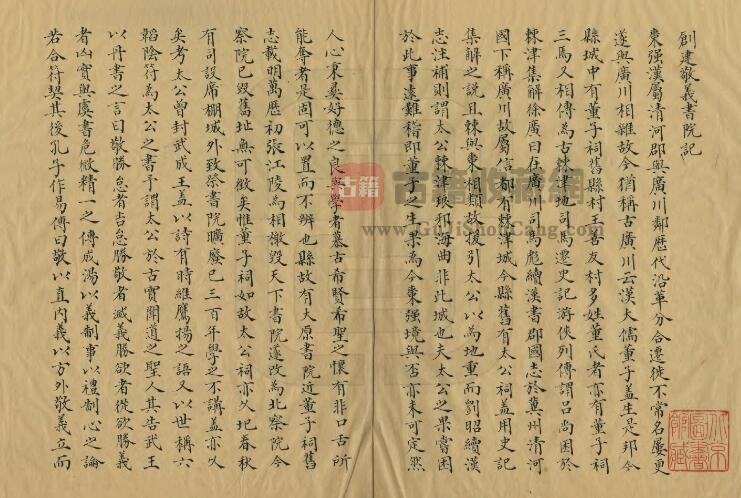 創建敬義書院記
棗强漢屬清河郡與廣川鄰歷代沿革分合遷徙不常名屢更
遂與廣川相雜故今猶稱古廣川云漢大儒董子蓋生是邦今
縣城中有董子祠舊縣村王善友村多姓董氏者亦有董子祠
三焉又相傳為古棘津地司馬遷史記游俠列傳謂吕尚困於
棘津集解徐廣曰在廣川司馬彪續漢書郡國志於冀州清河
國下稱廣川故屬信都有棘津城今縣舊有太公祠盖用史記
集解之說且棘與東相類故援引太公以為地重而劉昭續漢
志注補則謂太公棘津琅邪海曲非此城也夫太公之果嘗困
於此事遠難稽即董子之生果為今棗强境與否亦未可定然
人心秉彝好德之良與學者慕古希賢希聖之懷有非口舌所
能奪者是固可以置而不辨也縣故有大原書院近董子祠舊
志載明萬歷初張江陵為相檄毀天下書院遂改為北察院今
察院已毀舊址無可徵矣惟董子祠如故太公祠亦久圮春秋
有司設席棚城外致祭書院曠廢已三百年學之不講盖亦久
矣考太公曾封武成王盖以詩有時維鷹揚之語又以世稱六
韜陰符為太公之書予謂太公於古實聞道之聖人其告武王
以丹書之言曰敬勝怠者吉怠勝敬者滅義勝欲者從欲勝義
者凶實與虞書危微精一之傳成湯以義制事以禮制心之論
若合符契其後孔子作易傳曰敬以直內義以方外敬義立而
古籍
古籍收藏網
www.GuJiShouCang.com